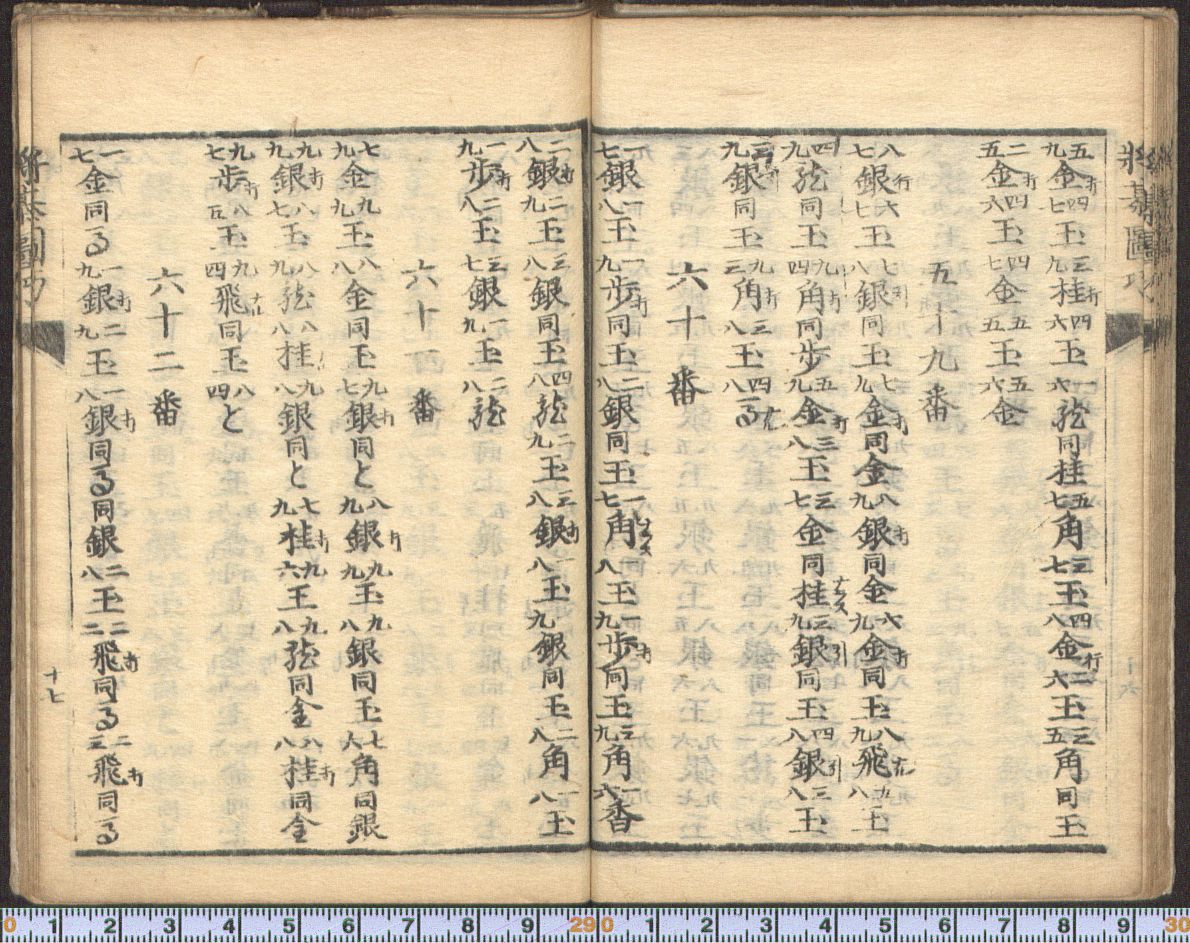 將棊圖巧
五九金打四七玉三九桂打四六玉一六龍同桂五七角三七玉四八金行二六玉三五角同玉
二五金打四六玉四七金五五玉五六金
五十九番
八七銀行六七玉七八銀引同玉七九金打同金八九銀打同金六九金打同玉八九飛五八玉
四九龍同玉九四角打同歩五九金打三八玉三七金同桂三九銀引同玉四八銀引三八玉
三九銀打同玉九三角打三八玉四八馬
六十番
一七銀一八玉一九歩打同玉二八銀同玉一七角ナラス一八玉一九歩打同玉三九角一六香
二八銀打二九玉三八銀同玉四八龍二九玉三八銀打一八玉一九銀同玉二八角一八玉
一九歩打二八玉三七銀一九玉二八龍
六十一番
七九金九九玉八八金同玉九七銀打同と八九銀打九九玉九八銀同玉七六角同銀
九九銀打八七玉八九龍八八桂九八銀同と七九桂打九六玉九八龍同金八八桂打同金
九七歩打八五玉九四飛同玉八四と
六十二番
一七金同馬一九銀打二九玉一八銀打同馬同銀二八玉二二飛打同馬二三飛打同馬
十七